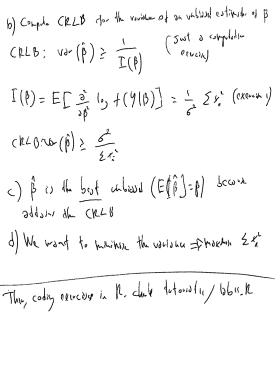 b) Compute CRLB for the variance of an unbiased estimator of β
CRLB: var(β̂) ≥ 1/I(β) (Just a computation exercise)
I(β) = E[∂²/∂β² log f(Y|β)] = 1/σ² Σx_i² (exercise 1)
CRLB: var(β̂) ≥ σ²/Σx_i²
c) β̂ is the best unbiased (E[β̂]=β) because
attains the CRLB
d) We want to minimise the variance ⇒ maximise Σx_i²
Then, coding exercise in R. check tutorial